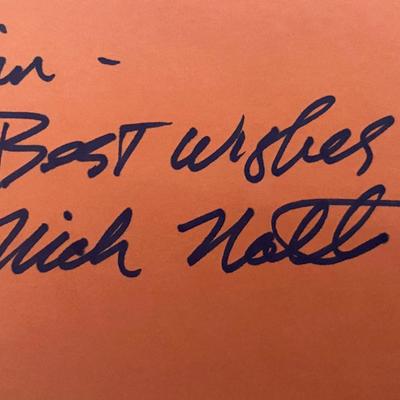 in -
Best Wishes
Nick Nolt